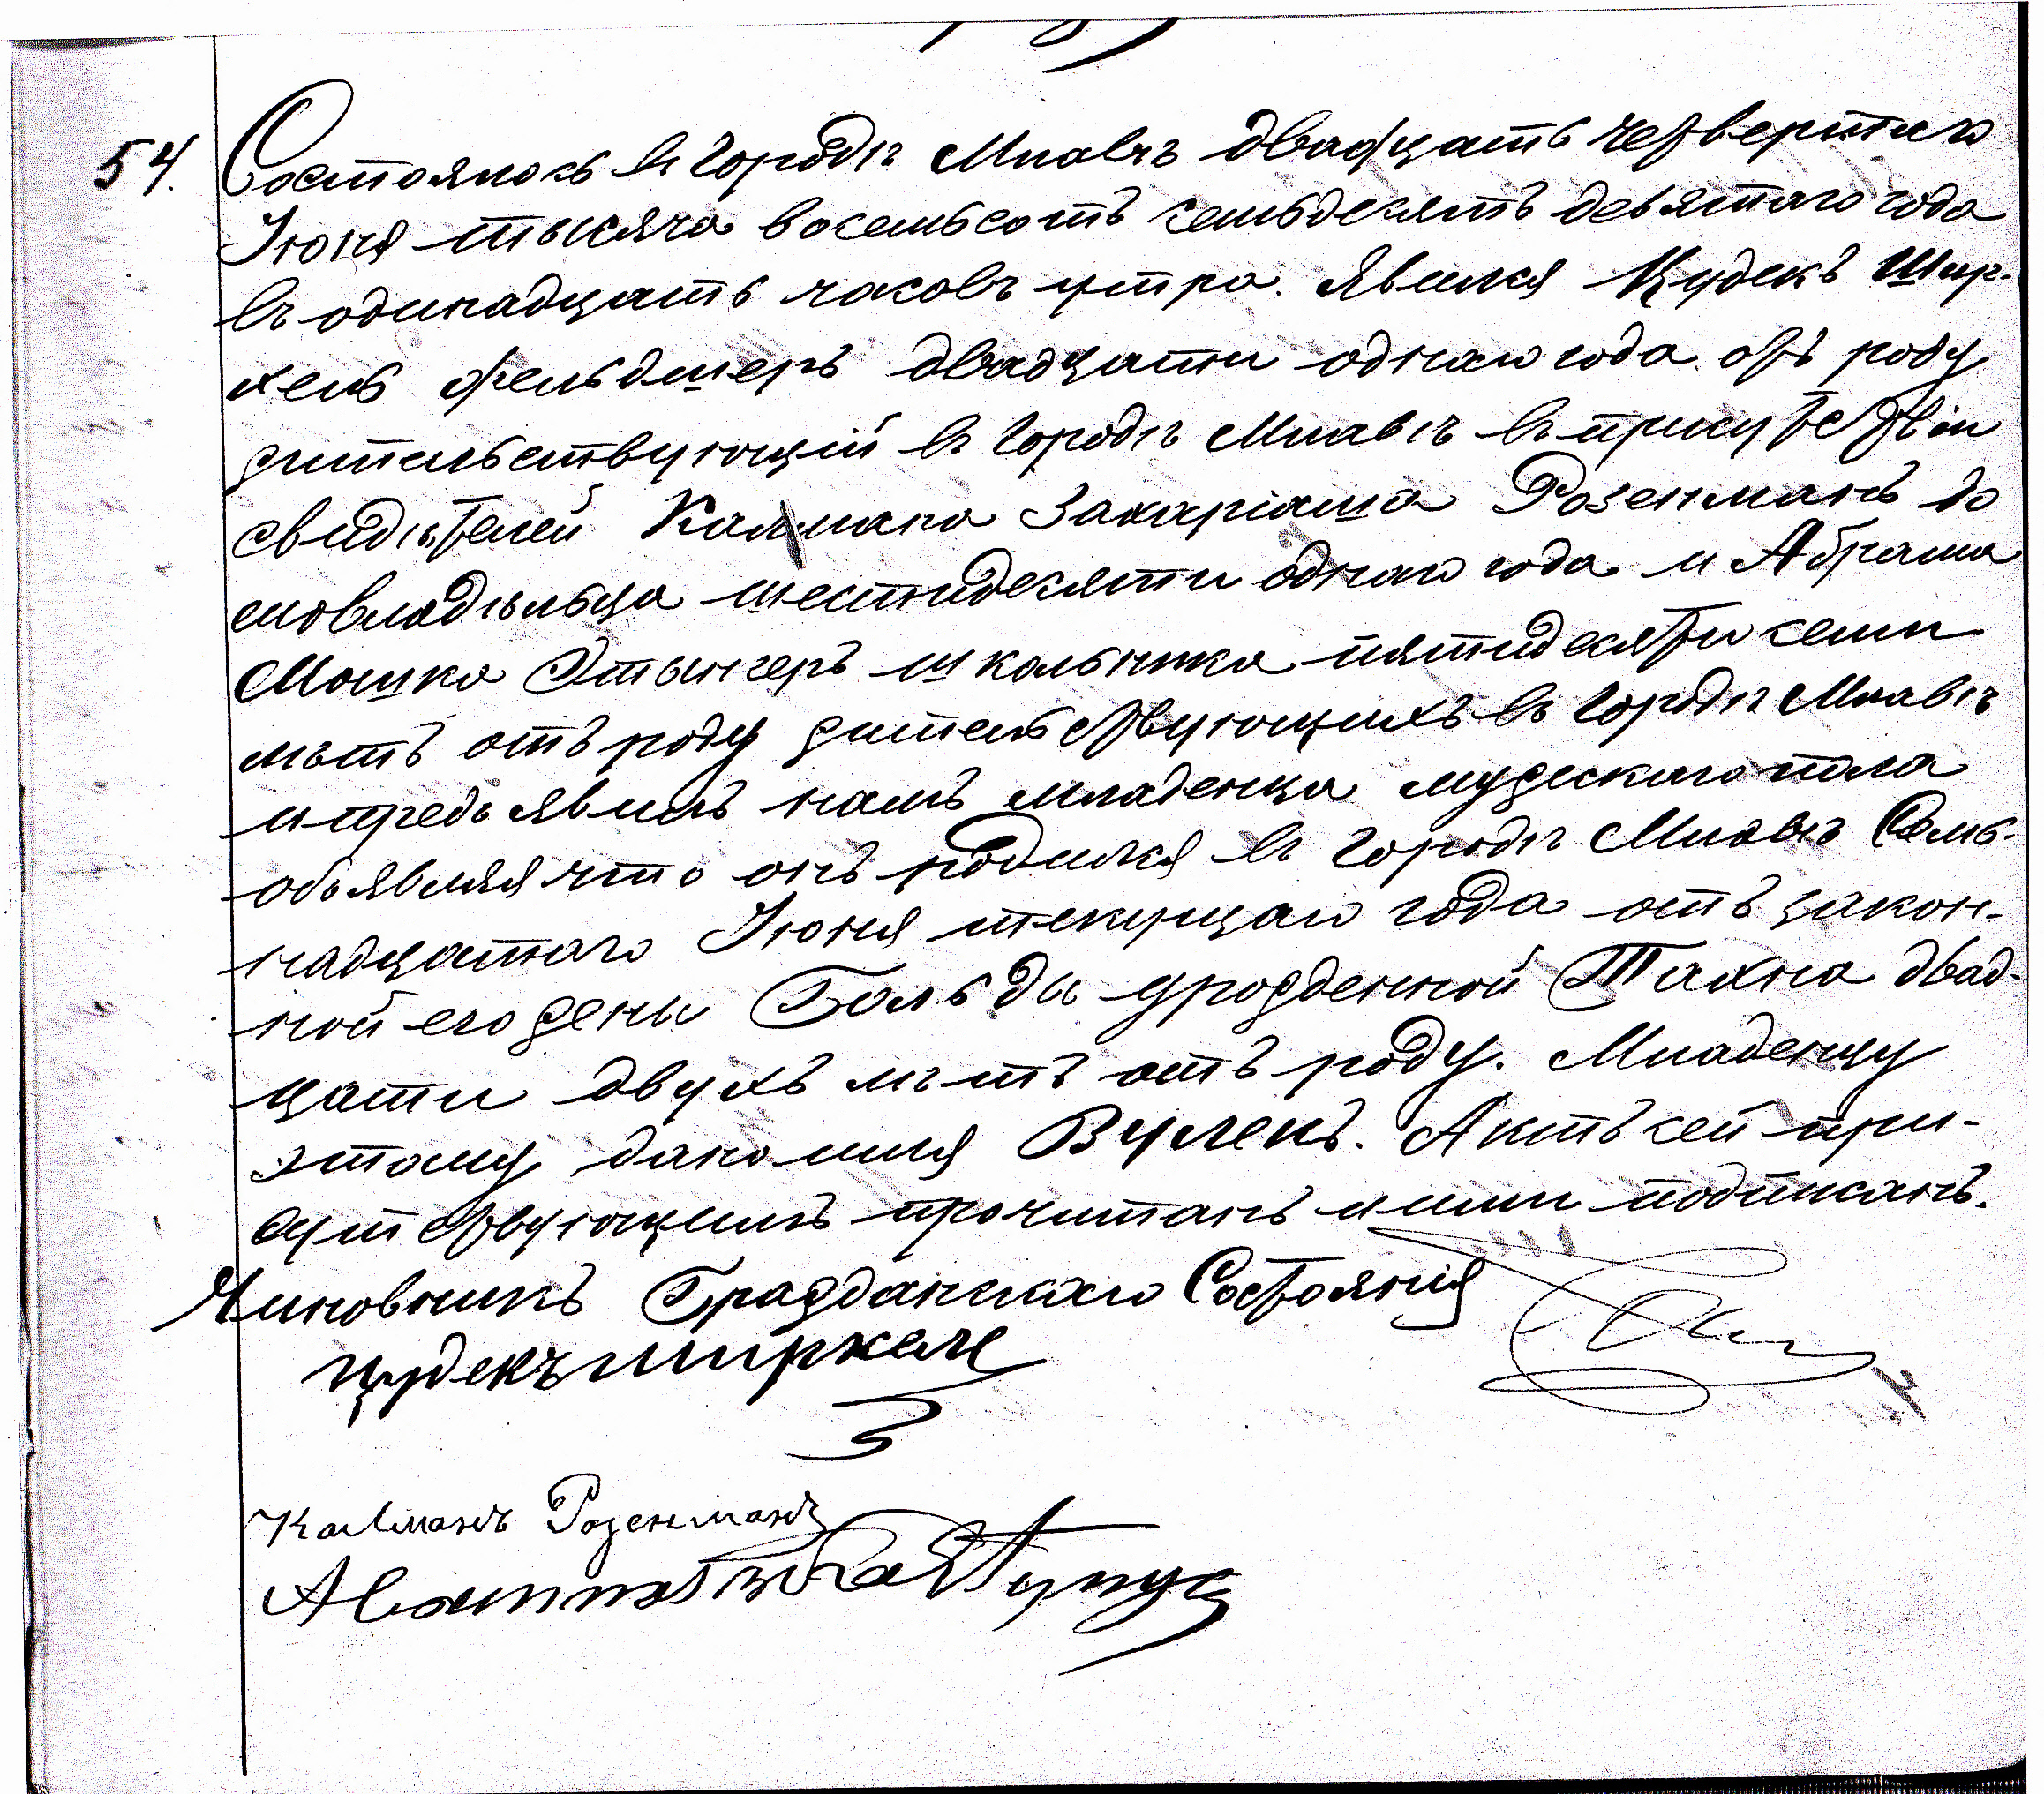 54.
Состоялось въ городѣ Млавѣ двадцать четвертаго
Іюня тысяча восемьсотъ семьдесятъ девятаго года
въ одинадцать часовъ утра. Явился Цудекъ Шир-
кель фельдшеръ двадцати однаго года отъ роду
жительствующій въ городѣ Млавѣ въ присутствіи
свидѣтелей Калмана Захаріаша Розенманъ до
мовладѣльца шестидесяти однаго года и Абрама
Мошка Этынгеръ школьника пятидесяти семи
лѣтъ отъ роду жительствующихъ въ городѣ Млавѣ
и предъявилъ намъ младенца мужескаго пола
объявляя что онъ родился въ городѣ Млавѣ Семь-
надцатаго Іюня текущаго года отъ закон-
ной его жены Гольды урожденной Тахна двад-
цати двухъ лѣтъ отъ роду. Младенцу
этому дано имя Вулекъ. Актъ сей при-
сутствующимъ прочитанъ и ими подписанъ.
Чиновникъ Гражданскаго Состоянія
Цудекъ Ширкель
Калманъ Розенманъ